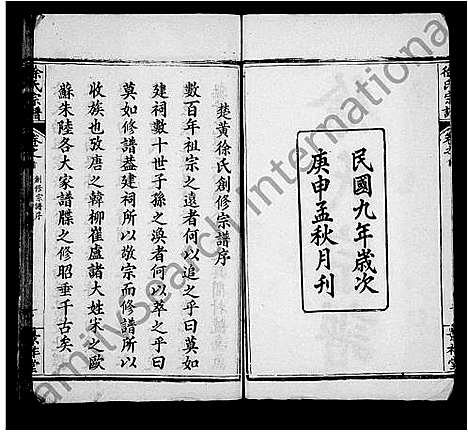 民國九年歲次
庚申孟秋月刊
徐氏宗譜
楚黃徐氏創修宗譜序
數百年祖宗之遠者何以追之乎曰莫如
建祠數十世子孫之渙者何以萃之乎曰
莫如修譜蓋建祠所以敬宗而修譜所以
收族也攷唐之韓柳崔盧諸大姓宋之歐
蘇朱陸各大家譜牒之修昭垂千古矣
徐氏宗譜
卷之首
創修宗譜序
Family Search International